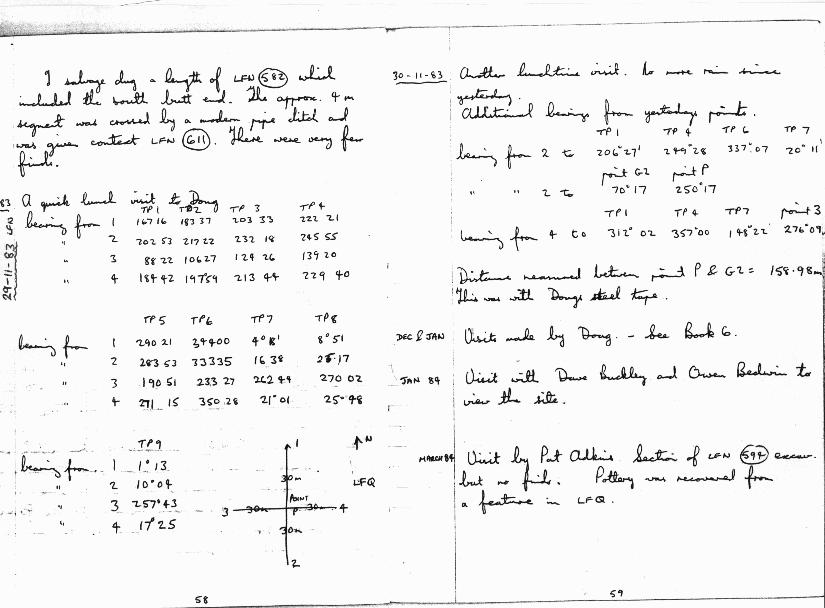 I salvage dug a length of LFN 582 which
included the south butt end. The approx. 4m
segment was crossed by a modern pipe ditch and
was given context LFN 611. There were very few
finds.
29-11-83 LFN 83
A quick lunch visit to Doug
TP1 TP2 TP 3 TP4
bearing from 1 167 16 183 37 203 33 222 21
" 2 202 53 217 22 232 18 245 55
" 3 88 22 106 27 124 26 139 20
" 4 184 42 197 59 213 44 229 40
TP5 TP6 TP7 TP8
bearing from 1 290 21 344 00 4° 18' 8° 51
" 2 283 53 333 35 16 38 25·17
" 3 190 51 233 27 262 49 270 02
" 4 271 15 350·28 21° 01 25·48
TP9
bearing from 1 1° 13
" 2 10° 04
" 3 257° 43
" 4 17° 25
1
N
30m
LFQ
POINT
3 30m P. 30m 4
30m
2
58
30-11-83 Another lunchtime visit. No more rain since
yesterday.
Additional bearings from yesterdays points.
TP1 TP 4 TP 6 TP 7
bearing from 2 to 206° 27' 249° 28 337° 07 20° 11'
point G2 point P
" " 2 to 70° 17 250° 17
TP1 TP4 TP7 point 3
bearing from 4 to 312° 02 357° 00 148° 22' 276° 09
Distance measured between point P & G2 = 158·98m
This was with Dougs steel tape.
DEC & JAN Visits made by Doug. - See Book 6.
JAN 84 Visit with Dave Buckley and Owen Bedwin to
view the site.
MARCH 84 Visit by Pat Adkins Section of LFN 594 excav.
but no finds. Pottery was recovered from
a feature in LFQ.
59